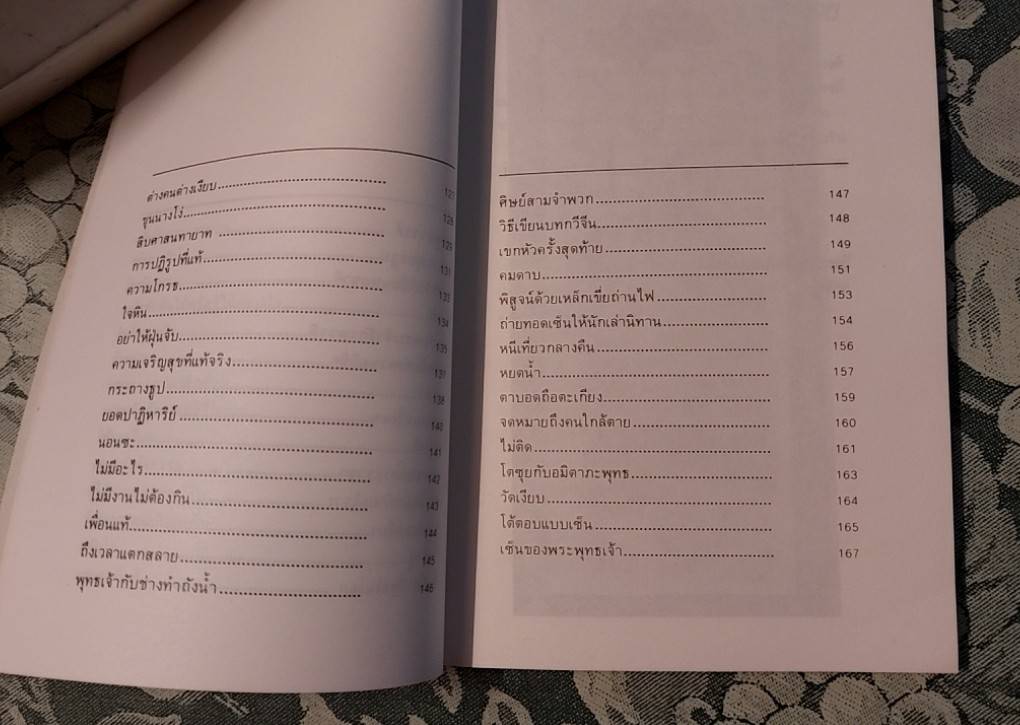 ต่างคนต่างเงียบ ........ 127
ขุนนางโง่ ........ 128
สืบศาสนทายาท ........ 129
การปฏิรูปที่แท้ ........ 131
ความโกรธ ........ 133
ใจหิน ........ 134
อย่าให้ฝุ่นจับ ........ 135
ความเจริญสุขที่แท้จริง ........ 137
กระถางธูป ........ 138
ยอดปาฏิหาริย์ ........ 140
นอนซะ ........ 141
ไม่มีอะไร ........ 142
ไม่มีงานไม่ต้องกิน ........ 143
เพื่อนแท้ ........ 144
ถึงเวลาแตกสลาย ........ 145
พุทธเจ้ากับช่างทำถังน้ำ ........ 146
ศิษย์สามจำพวก ........ 147
วิธีเขียนบทกวีจีน ........ 148
เขกหัวครั้งสุดท้าย ........ 149
คมดาบ ........ 151
พิสูจน์ด้วยเหล็กเขี่ยถ่านไฟ ........ 153
ถ่ายทอดเซ็นให้นักเล่านิทาน ........ 154
หนีเที่ยวกลางคืน ........ 156
หยดน้ำ ........ 157
ตาบอดถือตะเกียง ........ 159
จดหมายถึงคนใกล้ตาย ........ 160
ไม่ติด ........ 161
โตซุยกับอมิตาภะพุทธ ........ 163
วัดเงียบ ........ 164
โต้ตอบแบบเซ็น ........ 165
เซ็นของพระพุทธเจ้า ........ 167